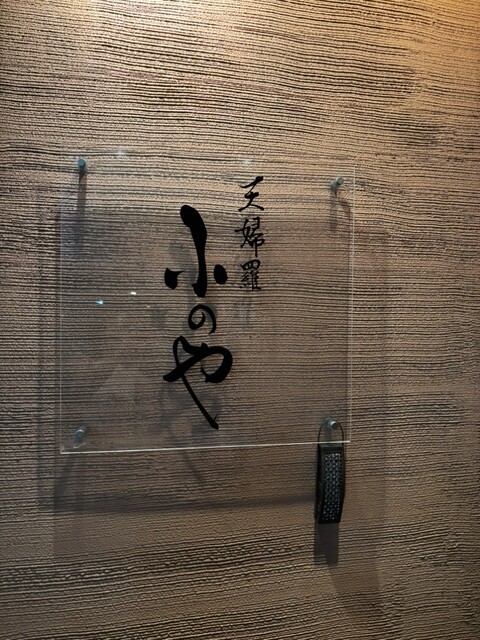 天婦羅
小のや